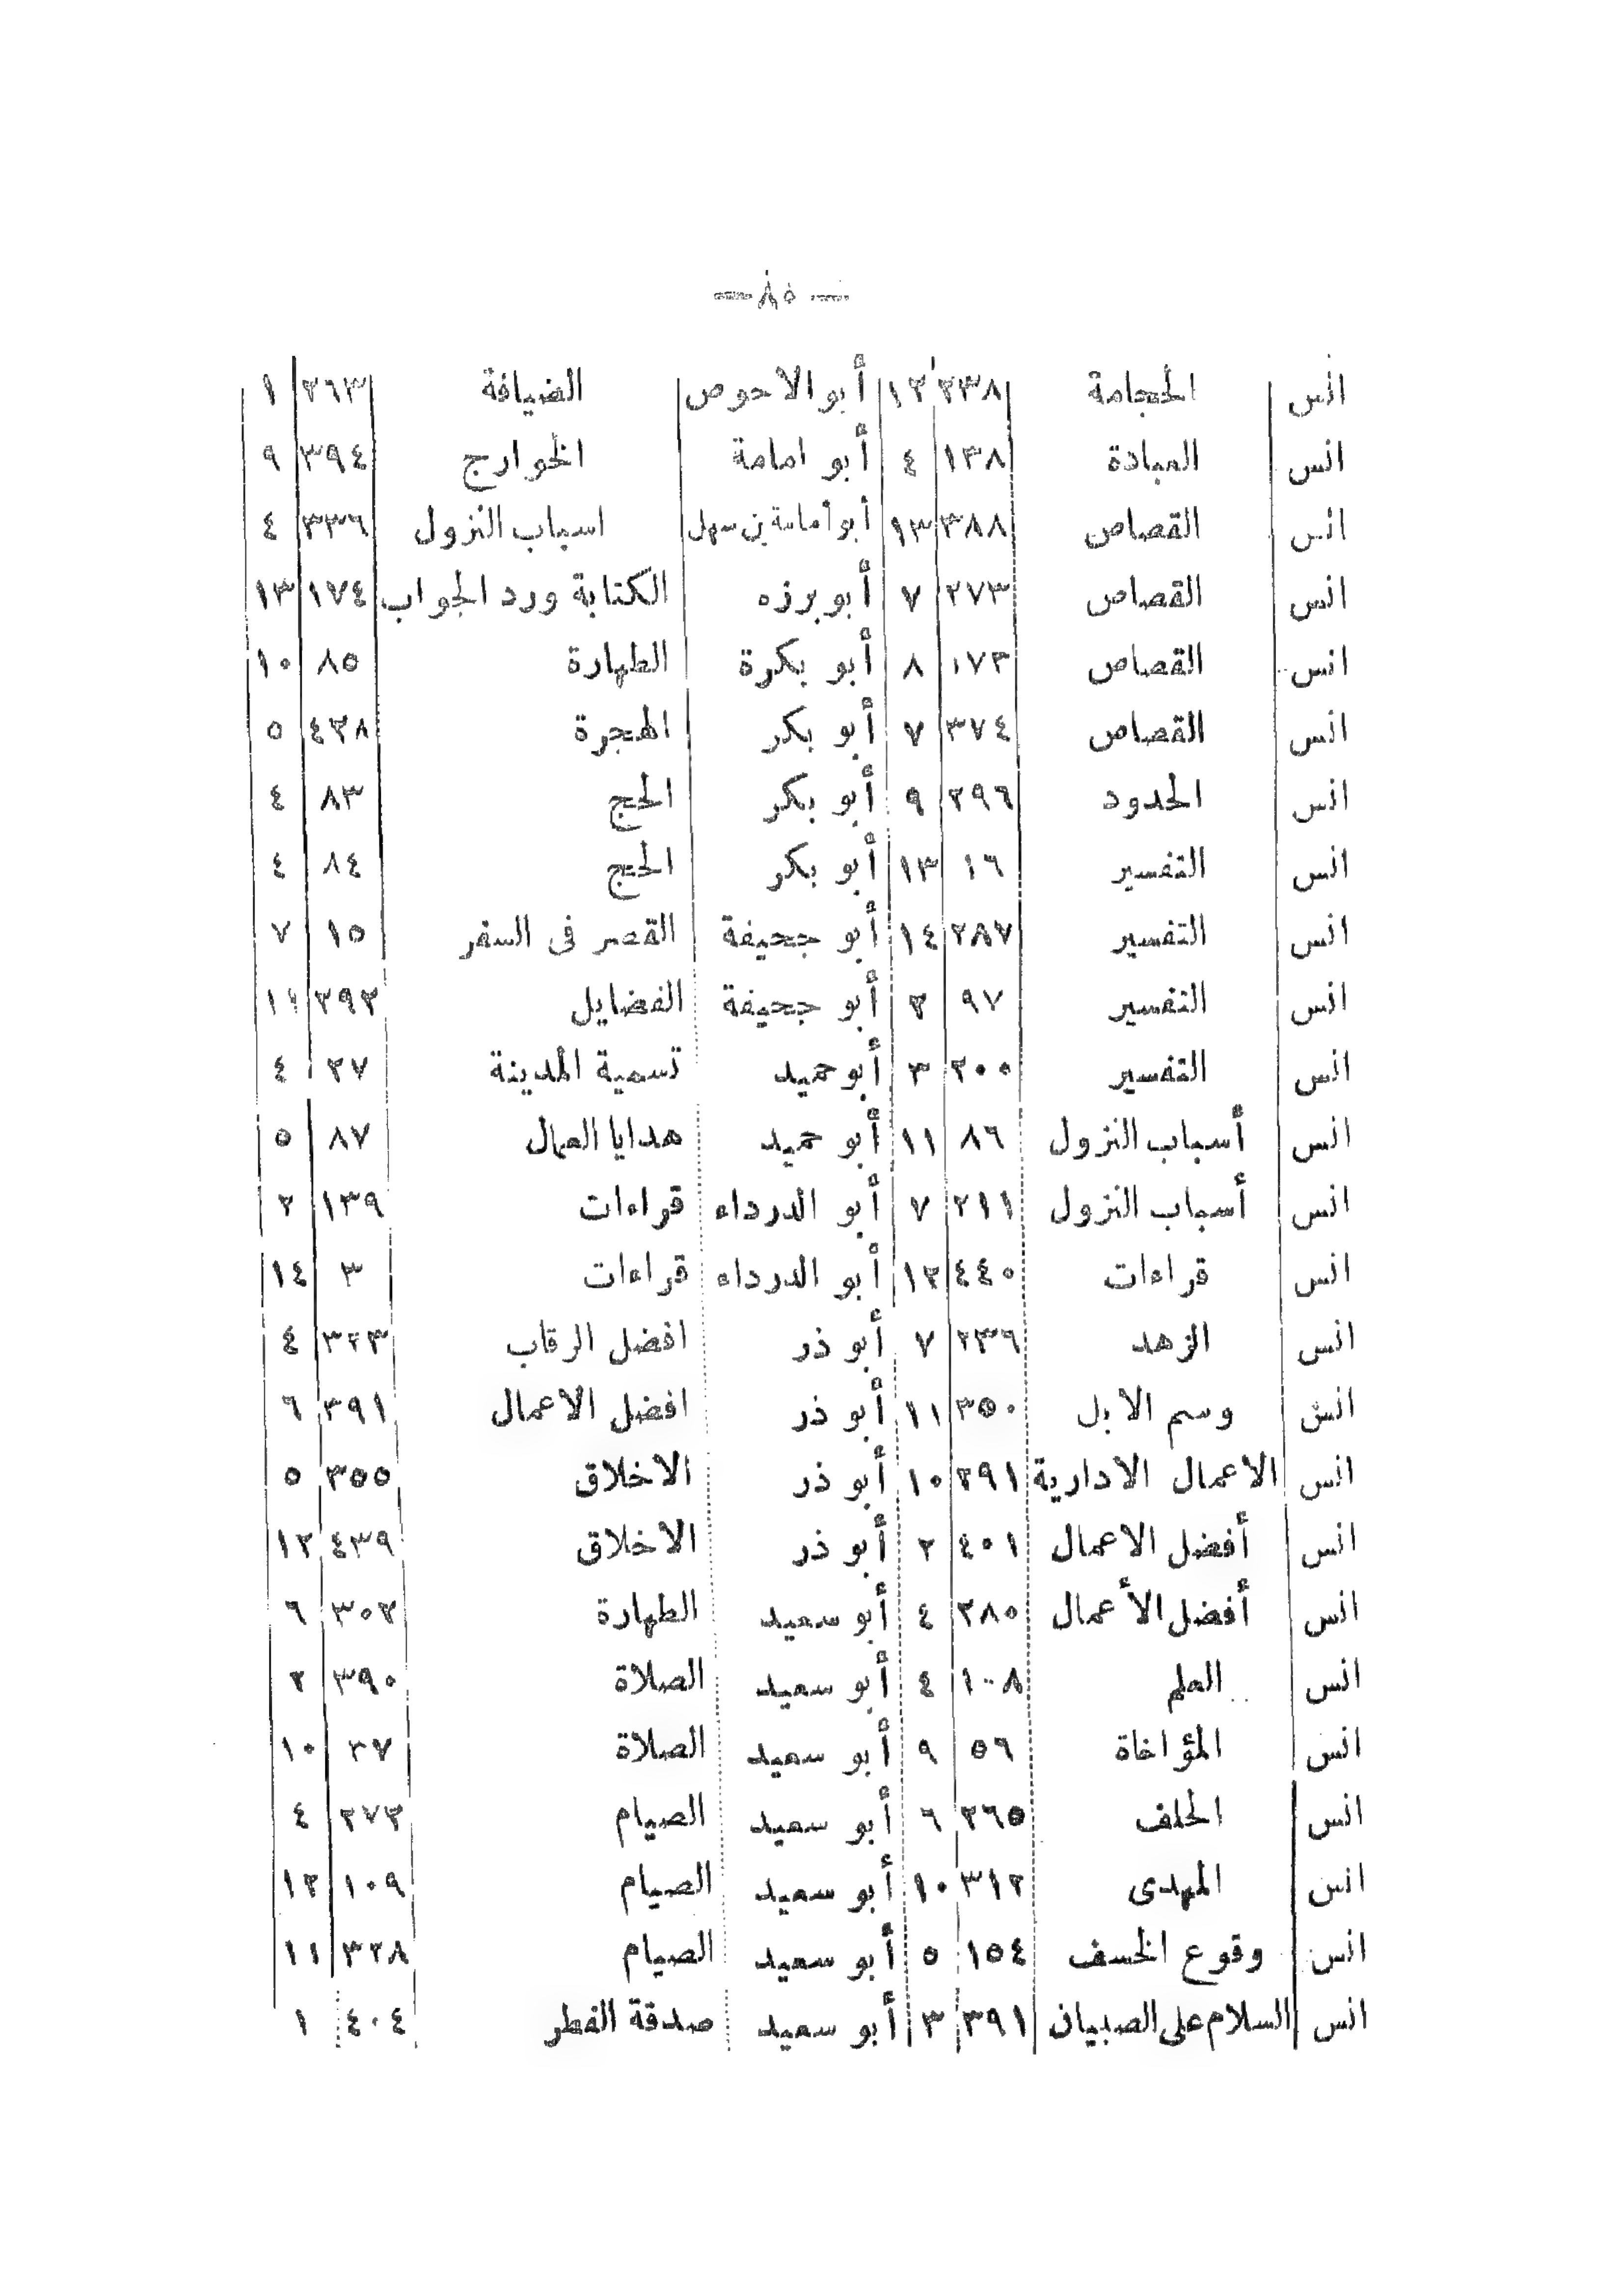 — ٨٥ —
انس الحجامة ٢٣٨ ١٢ أبو الاحوص الضيافة ٢٦٣ ١
انس العبادة ١٣٨ ٤ أبو امامة الخوارج ٣٩٤ ٩
انس القصاص ٣٨٨ ١٣ أبو أمامة بن سهل اسباب النزول ٣٣٦ ٤
انس القصاص ٢٧٣ ٧ أبو برزه الكتابة ورد الجواب ١٧٤ ١٣
انس القصاص ٨ أبو بكرة الطهارة ٨٥ ١٠
انس القصاص ٣٧٤ ٧ أبو بكر الهجرة ٤٣٨ ٥
انس الحدود ٢٩٦ ٩ أبو بكر الحج ٨٣ ٤
انس التفسير ١٦ ١٣ أبو بكر الحج ٨٤ ٤
انس التفسير ٢٨٧ ١٤ أبو جحيفة القصر فى السفر ١٥ ٧
انس التفسير ٩٧ ٢ أبو جحيفة الفضايل ٢٩٢
انس التفسير ٢٠٠ ٣ أبو حميد تسمية المدينة ٢٧ ٤
انس أسباب النزول ٨٦ ١١ أبو حميد هدايا العمال ٨٧ ٥
انس أسباب النزول ٢١١ ٧ أبو الدرداء قراءات ١٣٩ ٢
انس قراءات ٤٤٠ ١٢ أبو الدرداء قراءات ٣ ١٤
انس الزهد ٢٣٦ ٧ أبو ذر افضل الرقاب ٣٢٣ ٤
انس وسم الابل ٣٥٠ ١١ أبو ذر افضل الاعمال ٣٩١ ٦
انس الاعمال الادارية ٢٩١ ١٠ أبو ذر الاخلاق ٣٥٥ ٥
انس أفضل الاعمال ٤٠١ ٢ أبو ذر الاخلاق ٤٣٩ ١٢
انس أفضل الأعمال ٢٨٠ ٤ أبو سعيد الطهارة ٣٠٢ ٦
انس العلم ١٠٨ ٤ أبو سعيد الصلاة ٣٩٠ ٢
انس المؤاخاة ٥٦ ٩ أبو سعيد الصلاة ٢٧ ١٠
انس الحلف ٢٦٥ ٦ أبو سعيد الصيام ٢٧٢ ٤
انس المهدى ٣١٢ ١٠ أبو سعيد الصيام ١٠٩ ١٢
انس وقوع الخسف ١٥٤ ٥ أبو سعيد الصيام ٣٢٨ ١١
انس السلام على الصبيان ٣٩١ ٣ أبو سعيد صدقة الفطر ٤٠٤ ١